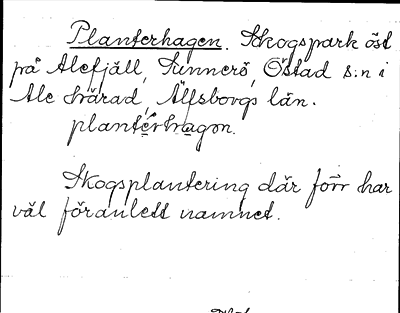 Planterhagen. Skogspark öst
på Alefjäll, Tunnerö, Östad s:n i
Ale härad, Älfsborgs län.
plantərhagɔn.
Skogsplantering där förr har
väl föranlett namnet.